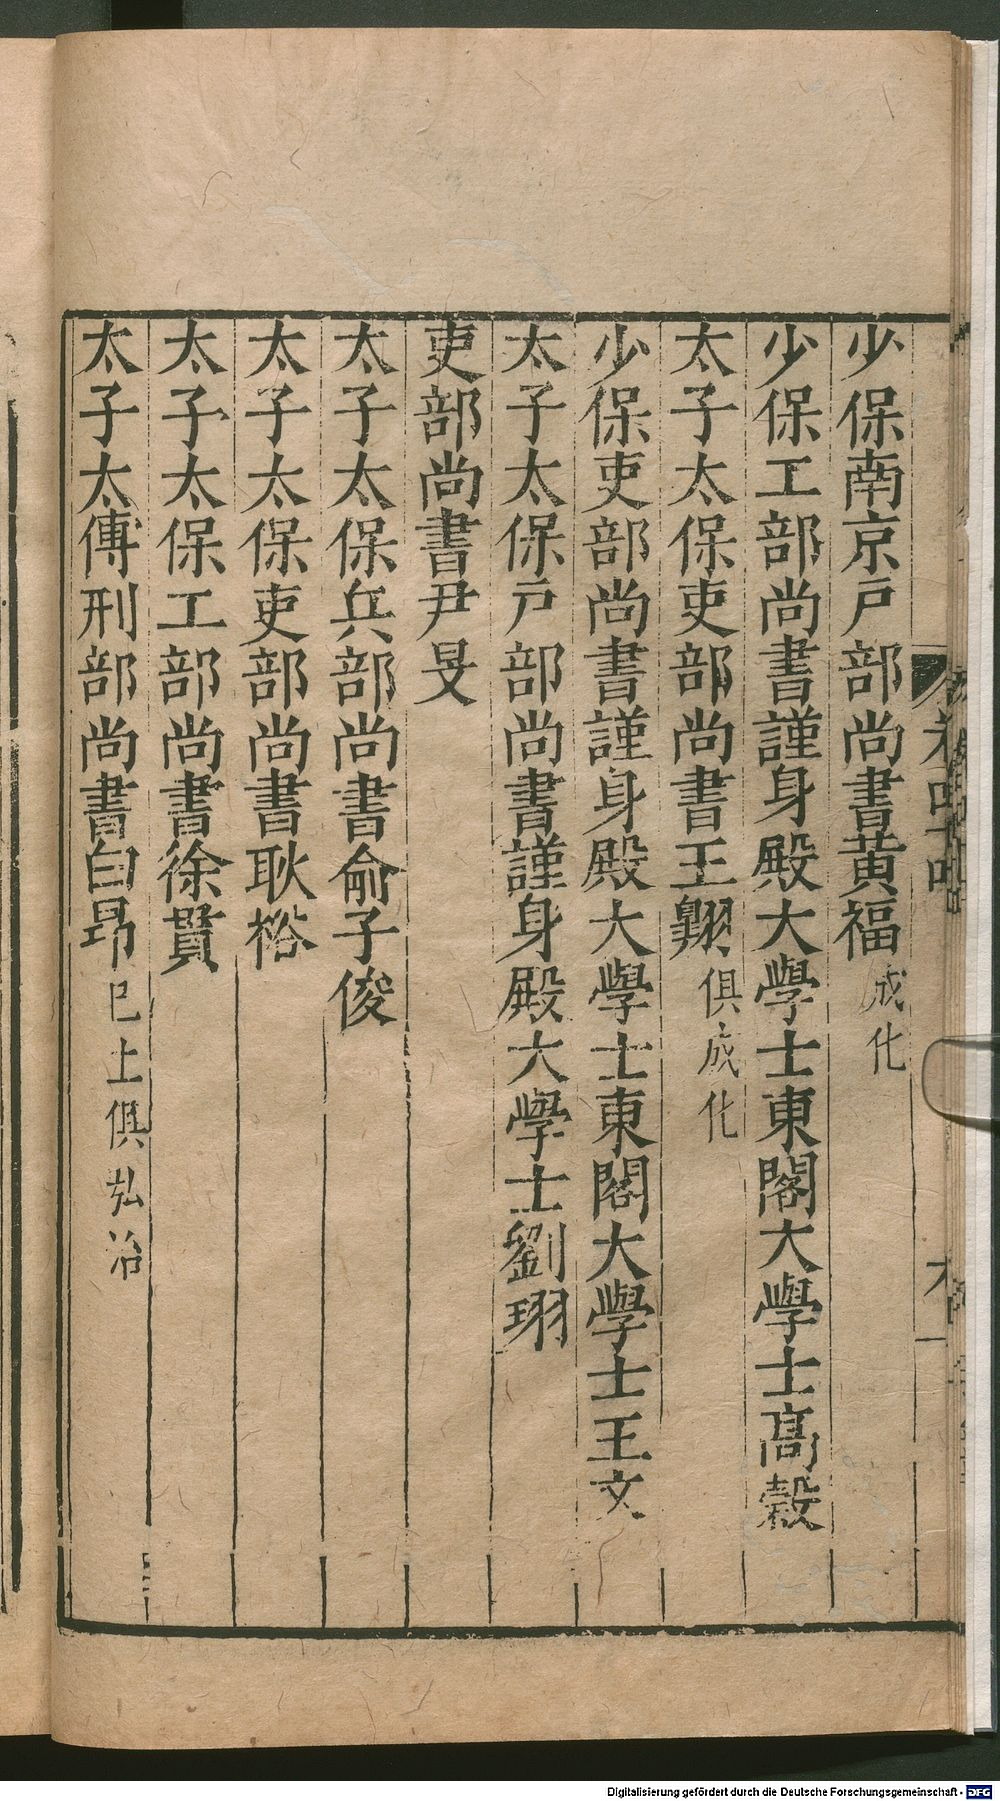 少保南京户部尚書黄福成化
少保工部尚書謹身殿大學士東閣大學士髙縠
太子太保吏部尚書王翺俱成化
少保吏部尚書謹身殿大學士東閣大學士王文
太子太保户部尚書謹身殿大學士劉珝
吏部尚書尹旻
太子太保兵部尚書俞子俊
太子太保吏部尚書耿𥙿
太子太保工部尚書徐貫
太子太傅刑部尚書白昂已上俱弘治
Digitalisierung gefördert durch die Deutsche Forschungsgemeinschaft - DFG